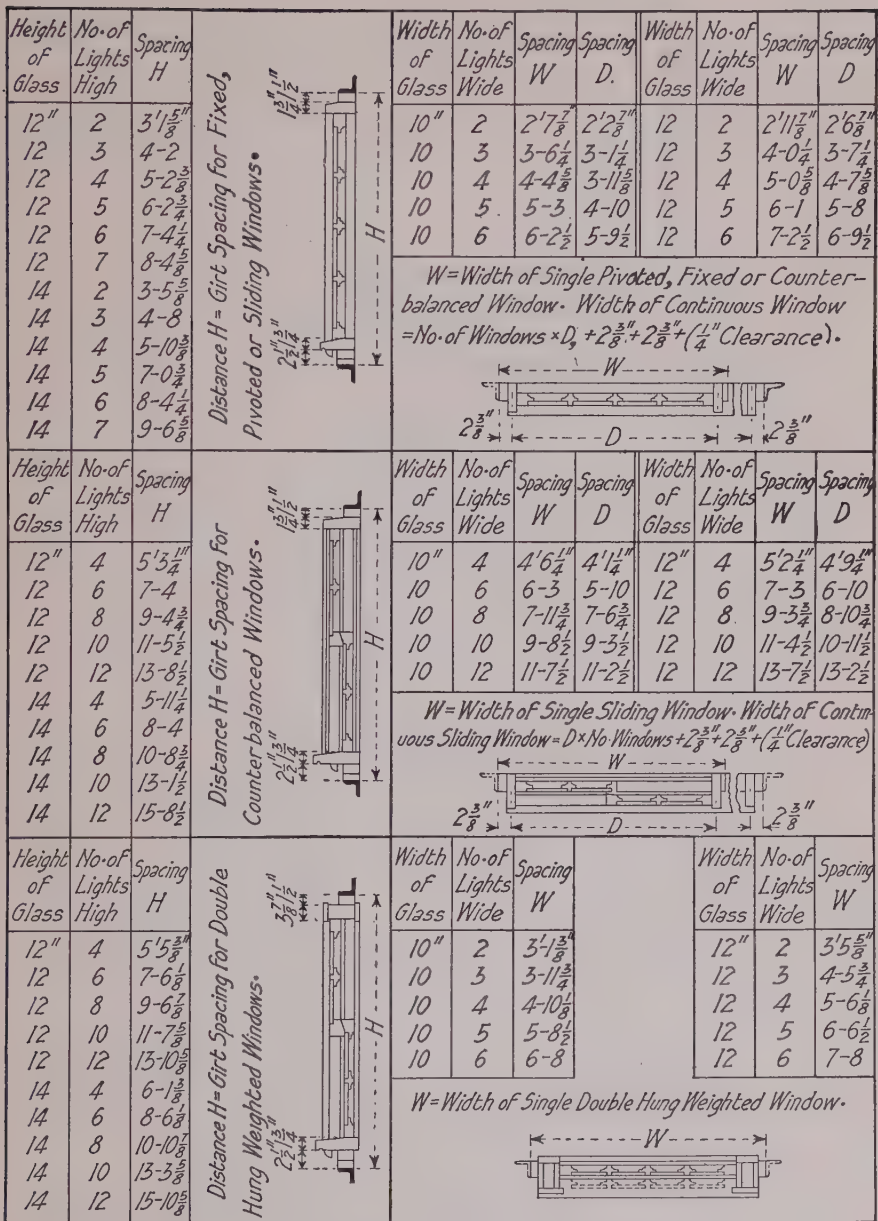 Height of Glass | No. of Lights High | Spacing H
12" | 2 | 3'1 5/8"
12 | 3 | 4-2
12 | 4 | 5-2 3/8
12 | 5 | 6-2 3/4
12 | 6 | 7-4 1/4
12 | 7 | 8-4 5/8
14 | 2 | 3-5 5/8
14 | 3 | 4-8
14 | 4 | 5-10 3/8
14 | 5 | 7-0 3/4
14 | 6 | 8-4 1/4
14 | 7 | 9-6 5/8
Distance H = Girt Spacing for Fixed,
Pivoted or Sliding Windows.
1 3/4" 1 1/2"
H
2 1/2" 1 3/4"
Width of Glass | No. of Lights Wide | Spacing W | Spacing D. | Width of Glass | No. of Lights Wide | Spacing W | Spacing D
10" | 2 | 2'7 7/8" | 2'2 7/8" | 12 | 2 | 2'11 7/8" | 2'6 7/8"
10 | 3 | 3-6 1/4 | 3-1 1/4 | 12 | 3 | 4-0 1/4 | 3-7 1/4
10 | 4 | 4-4 5/8 | 3-11 5/8 | 12 | 4 | 5-0 5/8 | 4-7 5/8
10 | 5 | 5-3 | 4-10 | 12 | 5 | 6-1 | 5-8
10 | 6 | 6-2 1/2 | 5-9 1/2 | 12 | 6 | 7-2 1/2 | 6-9 1/2
W = Width of Single Pivoted, Fixed or Counter-
balanced Window. Width of Continuous Window
= No. of Windows × D, + 2 3/8" + 2 3/8" + (1/4" Clearance).
W
2 3/8" D 2 3/8"
Height of Glass | No. of Lights High | Spacing H
12" | 4 | 5'3 1/4"
12 | 6 | 7-4
12 | 8 | 9-4 3/4
12 | 10 | 11-5 1/2
12 | 12 | 13-8 1/2
14 | 4 | 5-11 1/4
14 | 6 | 8-4
14 | 8 | 10-8 3/4
14 | 10 | 13-1 1/2
14 | 12 | 15-8 1/2
Distance H = Girt Spacing for
Counterbalanced Windows.
1 3/4" 1 1/2"
H
2 1/2" 1 3/4"
Width of Glass | No. of Lights Wide | Spacing W | Spacing D | Width of Glass | No. of Lights Wide | Spacing W | Spacing D
10" | 4 | 4'6 1/4" | 4'1 1/4" | 12" | 4 | 5'2 1/4" | 4'9 1/4"
10 | 6 | 6-3 | 5-10 | 12 | 6 | 7-3 | 6-10
10 | 8 | 7-11 3/4 | 7-6 3/4 | 12 | 8 | 9-3 3/4 | 8-10 3/4
10 | 10 | 9-8 1/2 | 9-3 1/2 | 12 | 10 | 11-4 1/2 | 10-11 1/2
10 | 12 | 11-7 1/2 | 11-2 1/2 | 12 | 12 | 13-7 1/2 | 13-2 1/2
W = Width of Single Sliding Window. Width of Contin-
uous Sliding Window = D × No. Windows + 2 3/8" + 2 3/8" + (1/4" Clearance)
W
2 3/8" D 2 3/8"
Height of Glass | No. of Lights High | Spacing H
12" | 4 | 5'5 3/8"
12 | 6 | 7-6 1/8
12 | 8 | 9-6 7/8
12 | 10 | 11-7 5/8
12 | 12 | 13-10 5/8
14 | 4 | 6-1 3/8
14 | 6 | 8-6 1/8
14 | 8 | 10-10 7/8
14 | 10 | 13-3 5/8
14 | 12 | 15-10 5/8
Distance H = Girt Spacing for Double
Hung Weighted Windows.
3 7/8" 1 1/2"
H
2 1/2" 1 3/4"
Width of Glass | No. of Lights Wide | Spacing W | Width of Glass | No. of Lights Wide | Spacing W
10" | 2 | 3'-1 3/8" | 12" | 2 | 3'5 5/8"
10 | 3 | 3-11 3/4 | 12 | 3 | 4-5 3/4
10 | 4 | 4-10 1/8 | 12 | 4 | 5-6 1/8
10 | 5 | 5-8 1/2 | 12 | 5 | 6-6 1/2
10 | 6 | 6-8 | 12 | 6 | 7-8
W = Width of Single Double Hung Weighted Window.
W